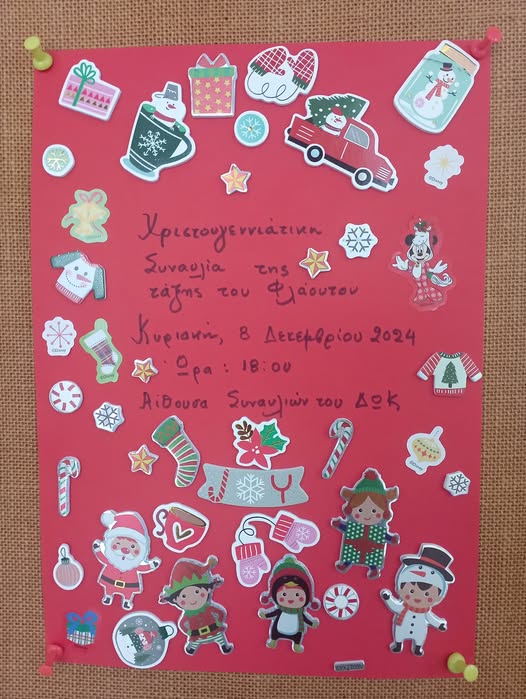 Χριστουγεννιάτικη
Συναυλία της
τάξης του Φλάουτου
Κυριακή, 8 Δεκεμβρίου 2024
Ώρα : 18:00
Αίθουσα Συναυλιών του ΔΩΚ